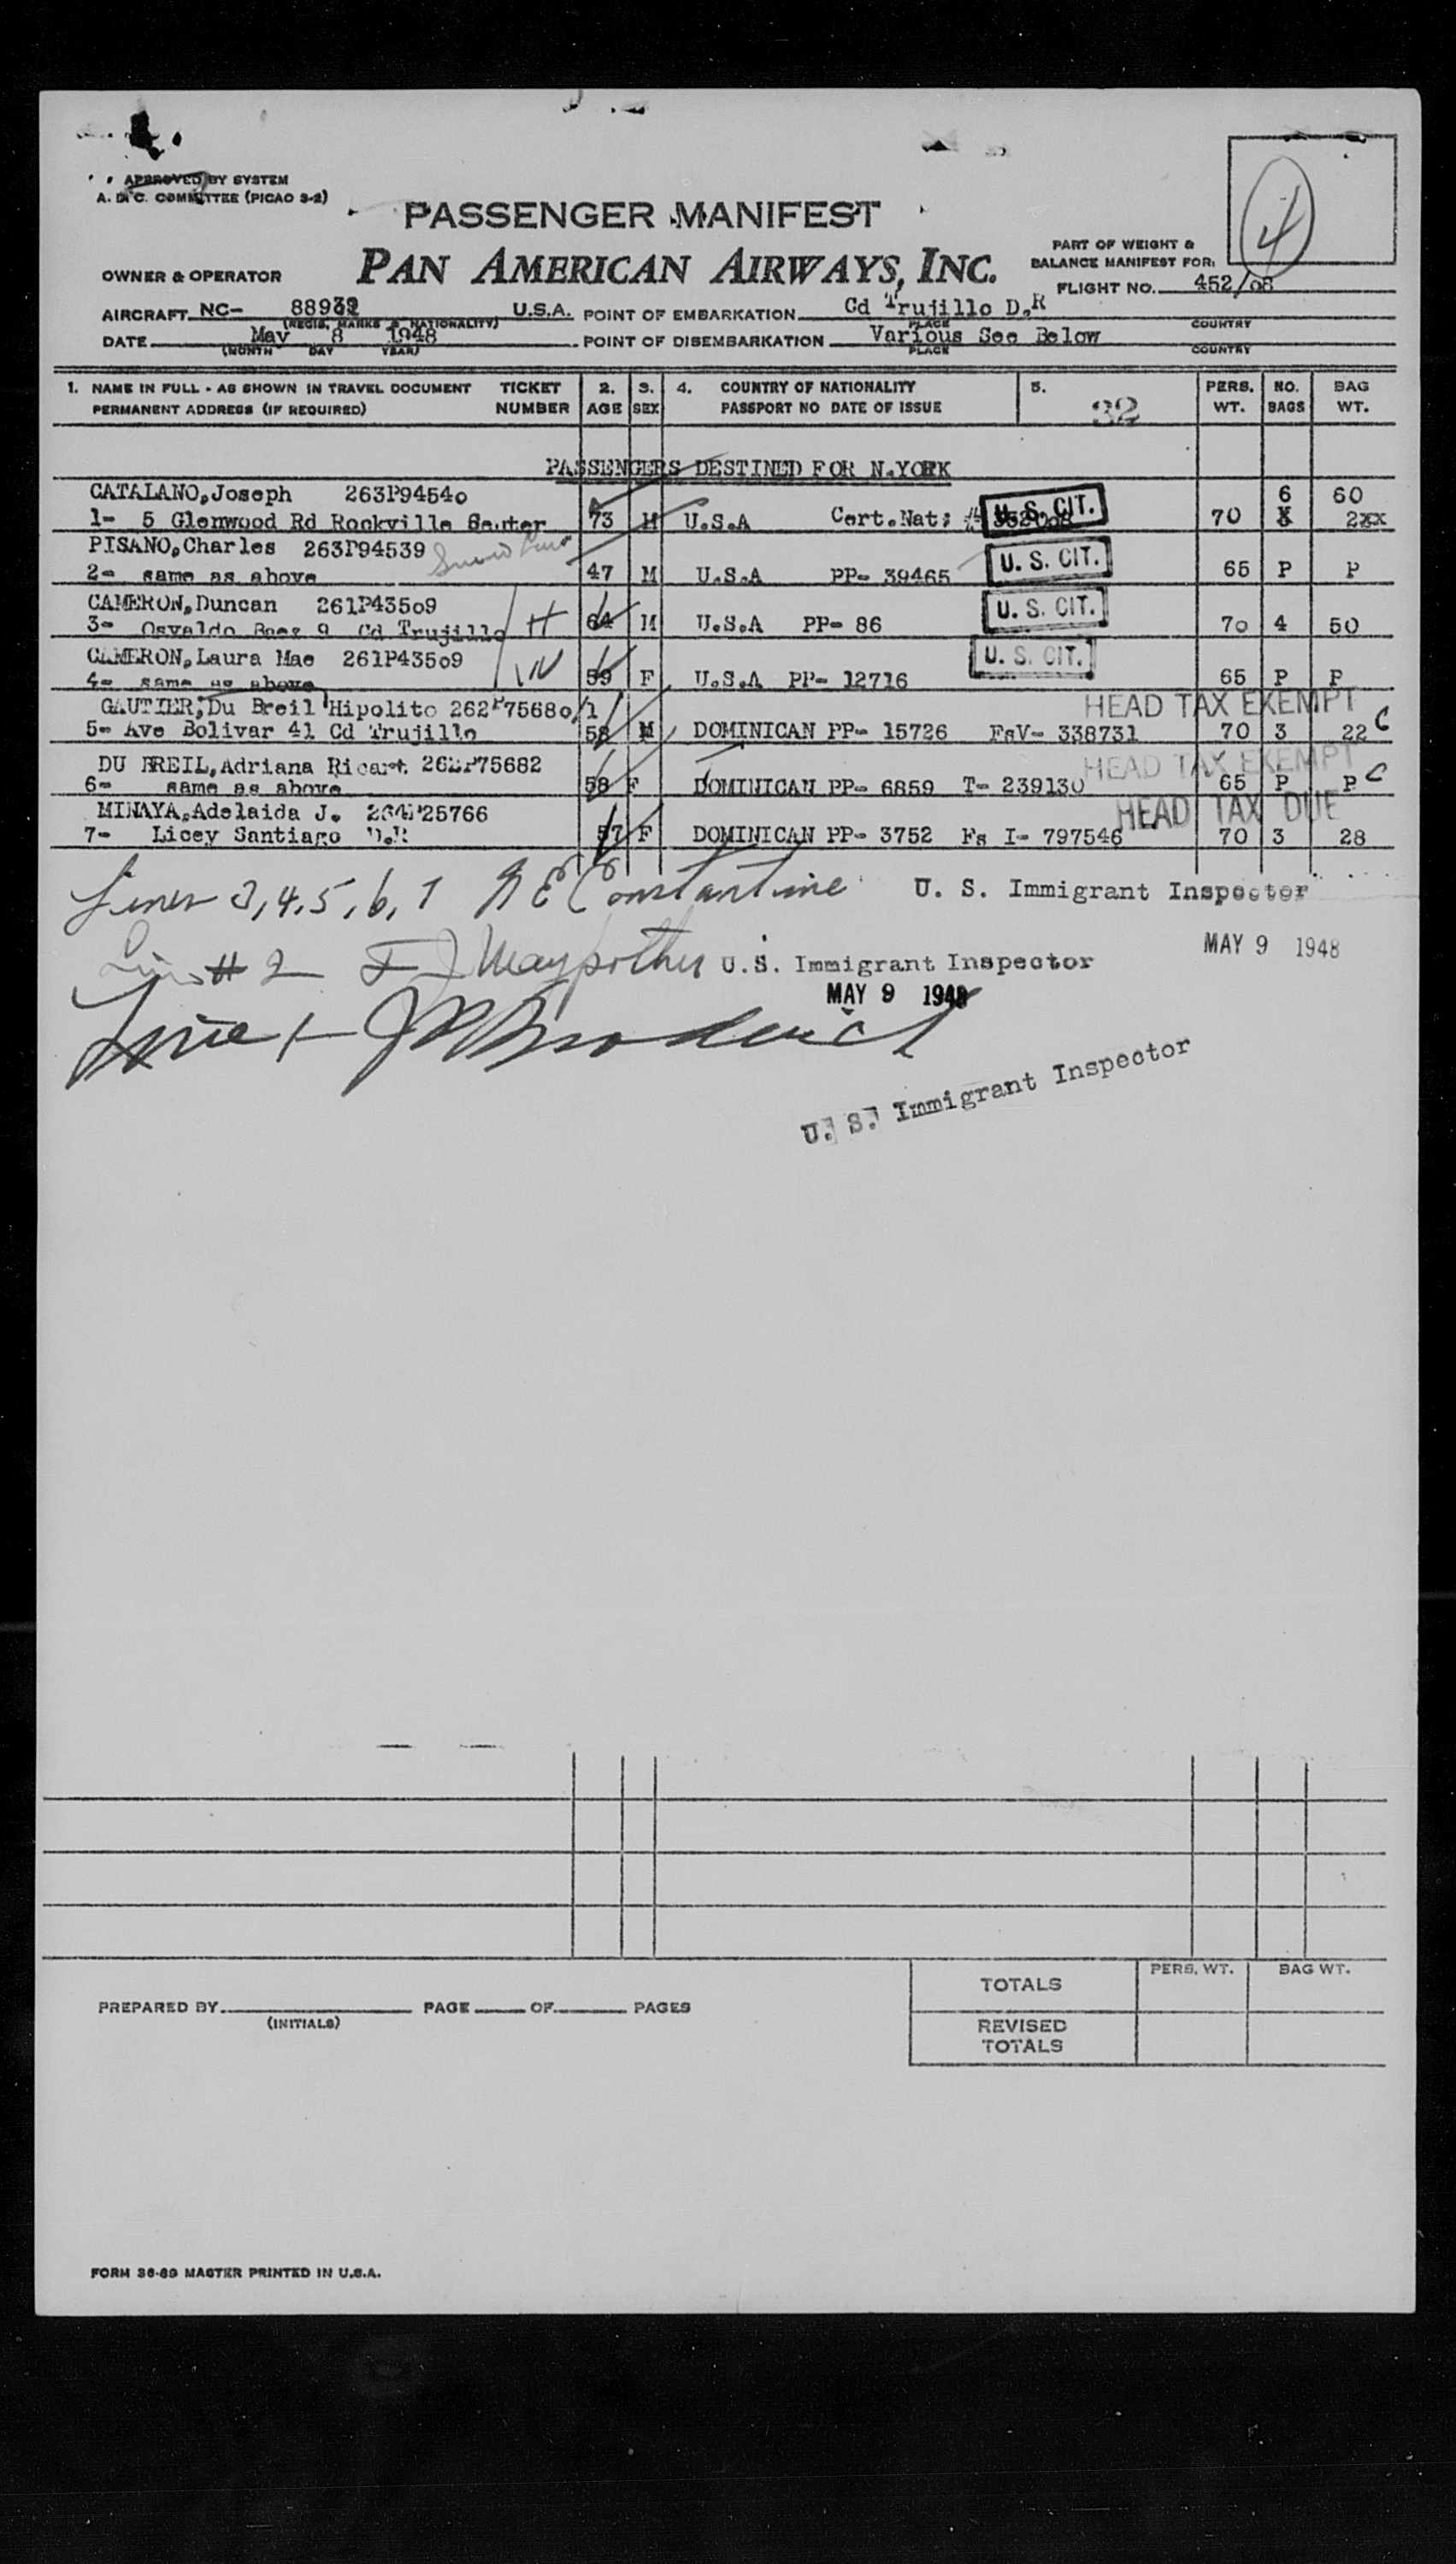 APPROVED BY SYSTEM
A. & C. COMMITTEE (PICAO 3-2)
PASSENGER MANIFEST
PAN AMERICAN AIRWAYS, INC.
OWNER & OPERATOR
PART OF WEIGHT &
BALANCE MANIFEST FOR:
4
FLIGHT NO. 452/08
AIRCRAFT NC- U.S.A. POINT OF EMBARKATION Cd Trujillo D.R
(REGIS. MARKS & NATIONALITY) PLACE COUNTRY
DATE May 8 1948 POINT OF DISEMBARKATION Various See Below
(MONTH DAY YEAR) PLACE COUNTRY
1. NAME IN FULL - AS SHOWN IN TRAVEL DOCUMENT TICKET 2. 3. 4. COUNTRY OF NATIONALITY 5. PERS. NO. BAG
PERMANENT ADDRESS (IF REQUIRED) NUMBER AGE SEX PASSPORT NO DATE OF ISSUE 32 WT. BAGS WT.
PASSENGERS DESTINED FOR N.YORK
CATALANO,Joseph 263P94540 6 60
1- 5 Glenwood Rd Rockville 73 M U.S.A Cert.Nat: # U. S. CIT. 70
PISANO,Charles 263P94539
2- same as above 47 M U.S.A PP- 39465 U. S. CIT. 65 P P
CAMERON,Duncan 261P43509
3- Osvaldo Baez 9 Cd Trujillo H 64 M U.S.A PP- 86 U. S. CIT. 70 4 50
CAMERON,Laura Mae 261P43509
4- same as above W 59 F U.S.A PP- 12716 U. S. CIT. 65 P P
GAUTIER,Du Breil Hipolito 262P75680/1 HEAD TAX EXEMPT
5- Ave Bolivar 41 Cd Trujillo 58 M DOMINICAN PP- 15726 FsV- 338731 70 3 22 C
DU BREIL,Adriana Ricart 262P75682 HEAD TAX EXEMPT
6- same as above 58 F DOMINICAN PP- 6859 T- 239130 65 P P C
MINAYA,Adelaida J. 264P25766 HEAD TAX DUE
7- Licey Santiago D.R 57 F DOMINICAN PP- 3752 Fs I- 797546 70 3 28
Lines 3,4,5,6,7 Constantine U. S. Immigrant Inspector
MAY 9 1948
Line # 2 U.S. Immigrant Inspector
MAY 9 1948
Line 1 Broderick
U. S. Immigrant Inspector
TOTALS PERS. WT. BAG WT.
PREPARED BY PAGE OF PAGES
(INITIALS)
REVISED
TOTALS
FORM 36-69 MASTER PRINTED IN U.S.A.